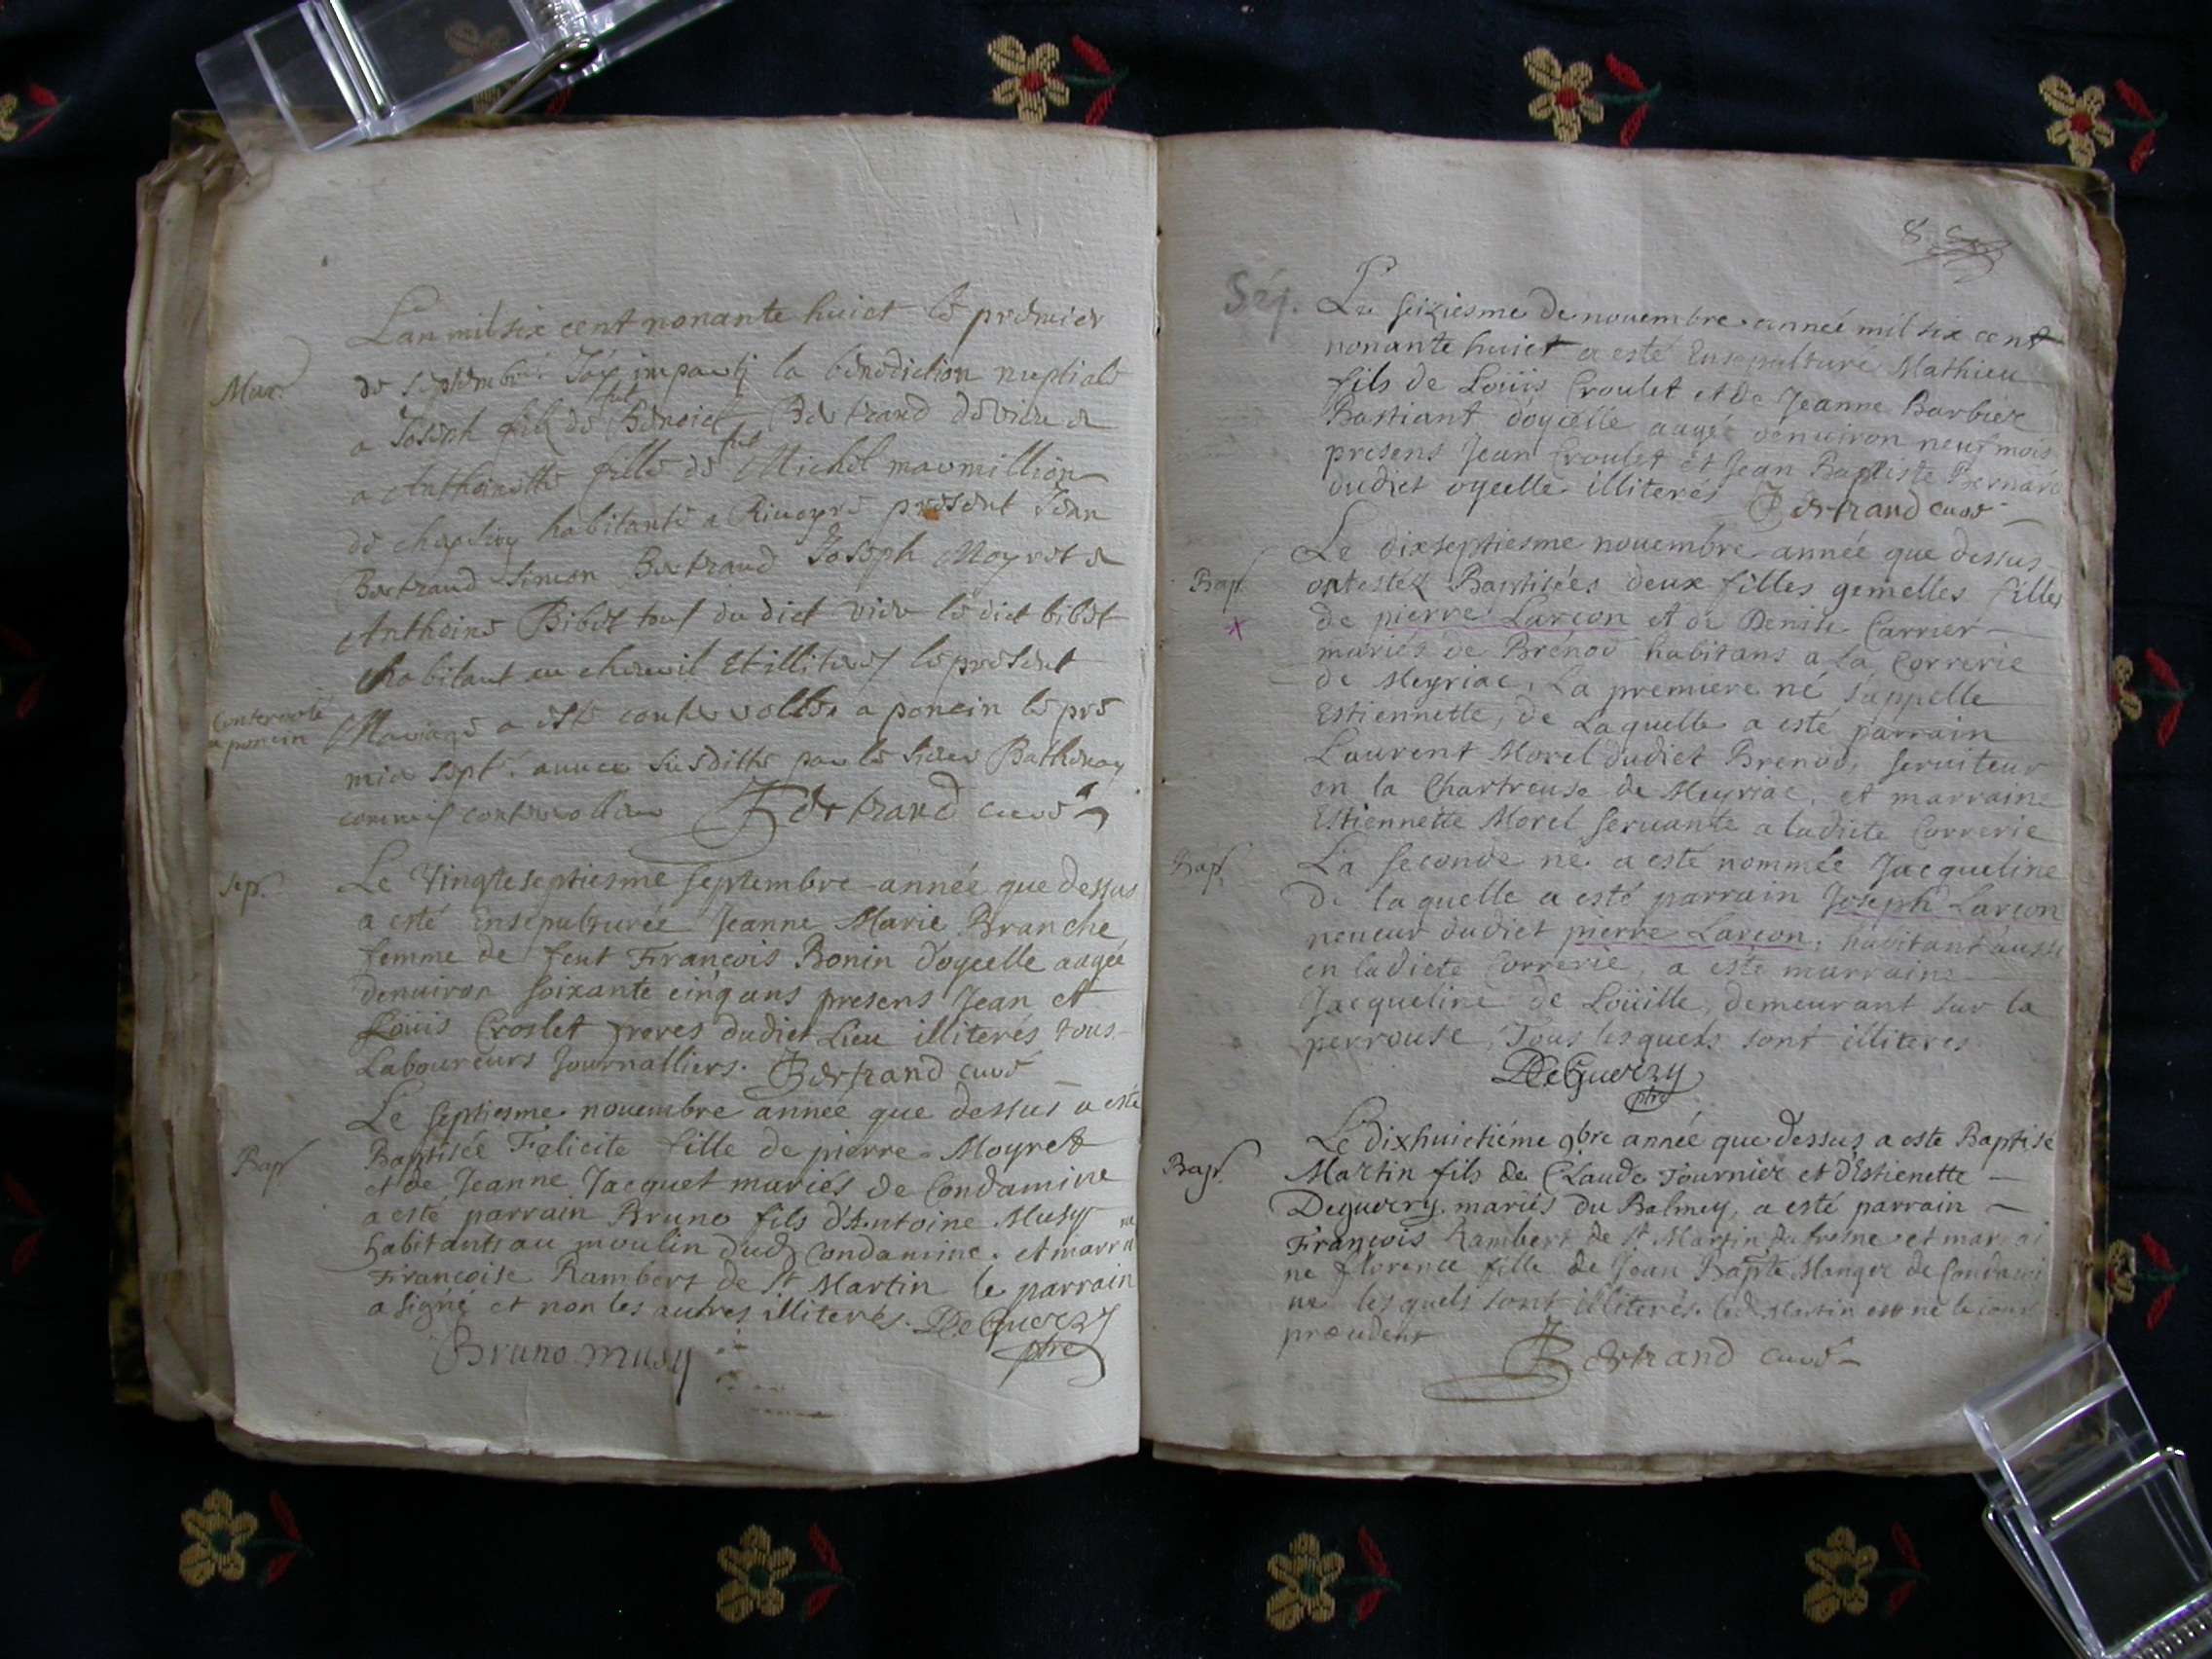 Lan mil six cent nonante huict le premier
Mar.
de septembre Jay imparty la benediction nuptiale
a Joseph filz de feu Benoict Bertrand de vieu et
a Anthoinette fille de feu Michel marmillion
de habitante a Rivoyre present Jean
Bertrand Simon Bertrand Joseph Moyret et
Anthoine Bibet touf du dict vieu le dict bibet
habitant au chevril Et illiteres le present
Conterollé a poncin
Mariage a este conterollee a poncin le pre
mier sept. annee susditte par le sieur
commis conterolleur Bertrand curé
Sep.
Le Vingteseptiesme septembre année que dessus
a esté Ensepulturée Jeanne Marie Branche
femme de feut François Bonin d'oycelle aagée
denuiron soixante cinq ans presens Jean et
Loüis Croslet freres dudict Lieu illiterés tous
Laboureurs Journalliers. Bertrand curé
Le septiesme nouembre année que dessus a esté
Bap.
Baptisée Felicite fille de pierre Moyret
et de Jeanne Jacquet mariés de Condamine
a esté parrain Bruno fils d'Antoine Musy
habitants au moulin dud Condamine. et marraine
Françoise Rambert de St Martin le parrain
a signé et non les autres illiterés. DeGuerzy
Bruno musy ptre
8
Sép.
Le seiziesme de nouembre année mil six cent
nonante huict a esté Ensepulturé Mathieu
fils de Loüis Croulet et de Jeanne Barbier
Bastiant d'oycelle aagé denuiron neuf mois
presens Jean Croulet et Jean Baptiste Bernard
dudict oycelle illiterés Bertrand curé
Le dixseptiesme nouembre année que dessus
Bap.
ont estéz Baptisées deux filles gemelles filles
de pierre Larçon et de Denise Carrier
mariés de Brénod habitans a La Correrie
de Meyriac, La premiere né s'appelle
Estiennette, de Laquelle a esté parrain
Laurent Morel dudict Brenod, seruiteur
en la Chartreuse de Meyriac, et marraine
Estiennette Morel seruante a ladicte Correrie
Bap.
La seconde né a esté nommée Jacqueline
de laquelle a esté parrain Joseph Larçon
neueur dudict pierre Larçon, habitant aussi
en ladicte Correrie, a esté marraine
Jacqueline de Loüille, demeurant sur la
perrouse, Tous lesquels sont illiteres
DeGuerzy
ptre
Le dixhuictiéme 9bre année que dessus a este Baptisé
Bap.
Martin fils de Claude Fournier et d'Estienette
Deguerzy mariés du Balmey, a esté parrain
François Rambert de St Martin du fresne et marrai
ne Florence fille de Jean Bapte Manger de Condami
ne lesquels sont illiterés. led Martin est né le jour
præcedent
Bertrand curé